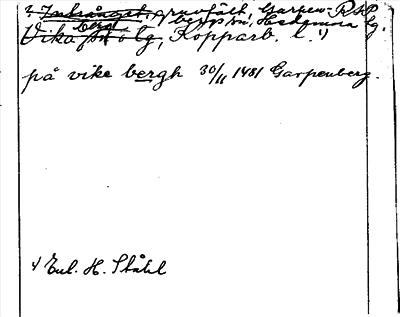 gruvfält, Garpen- RSP
bergs sn, Hedemora lg.
Vika sn o lg, Kopparb. l. 1)
på vike bergh 30/11 1481 Garpenberg.
1) Enl. H. Ståhl